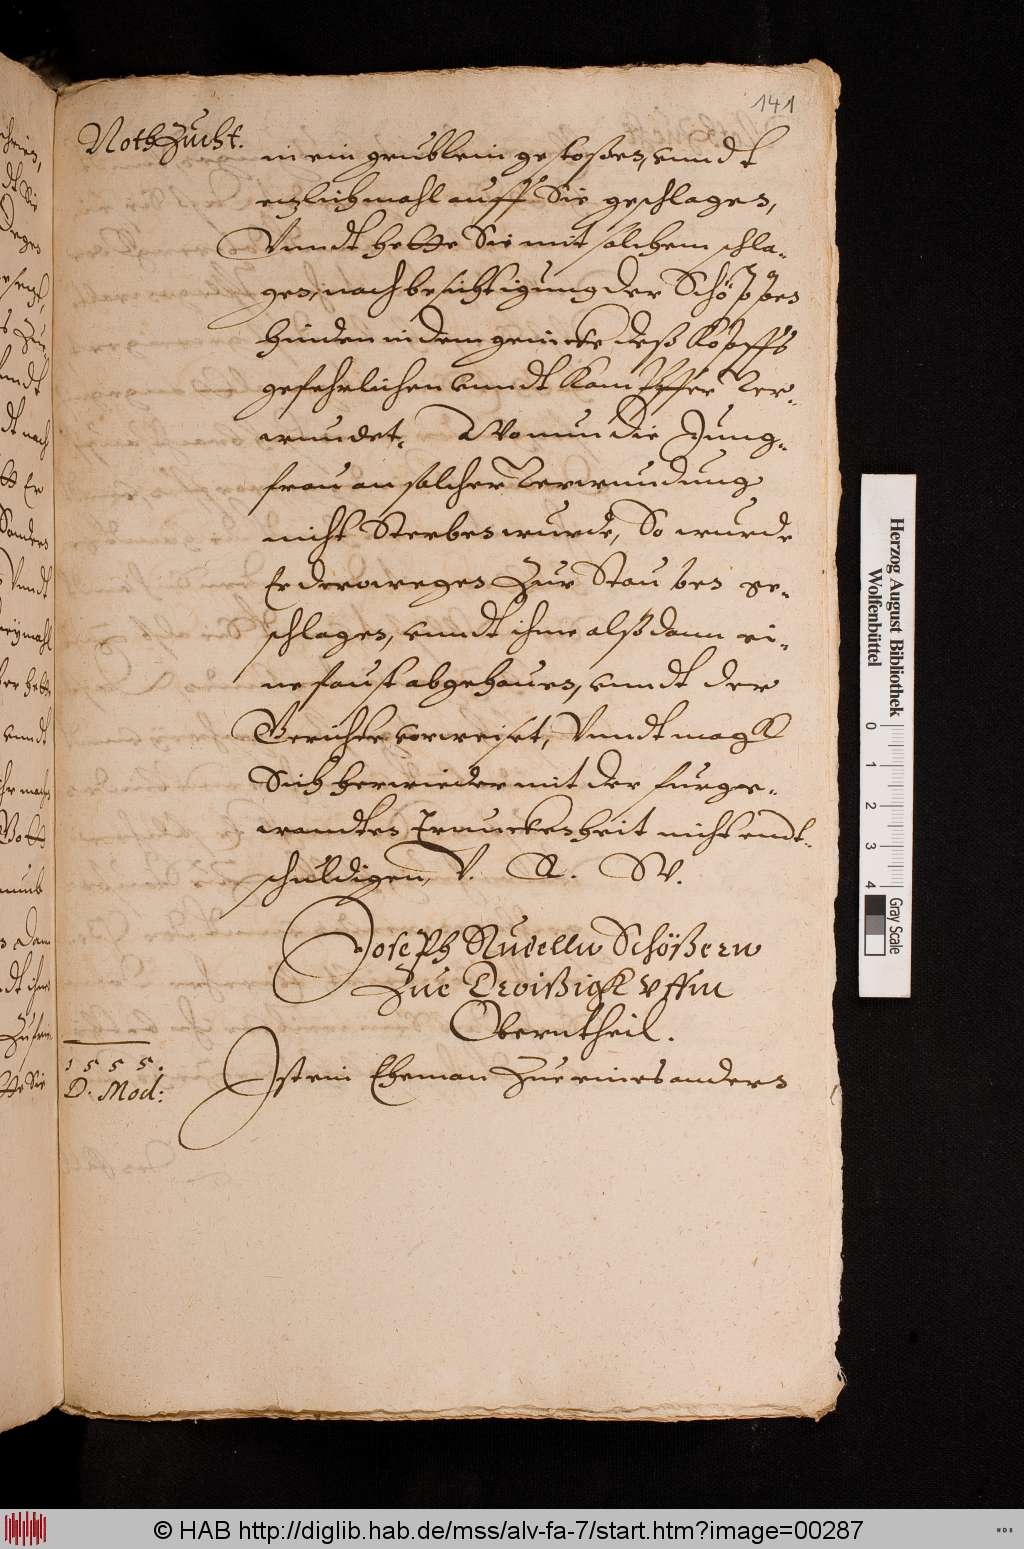 141
NothZucht.
in ein grublein gestoßen, vnndt
etzlich mahl auff Sie geschlagen,
Vnndt hette Sie mit solchem schla-
gen, nach besichtigung der Schöppen
hinden in dem genicke deß Kopffs
gefehrlichen vnndt Kampffer ver-
wundet. Wo nun die Jung-
frau an solcher verwundung
nicht Sterben wurde, So wurde
Er derowegen Zur Stauben ge-
schlagen, vnndt ihme alß dann ei-
ne faust abgehauen, vnndt der
Gerichte vorweiset, Vnndt magk
Sich herwieder mit der furge-
wandten Trunckenheit nicht endt-
schuldigen, V. R. W.
Joseph Nudelln Schößern
Zue Droißigk vffm
Oberntheil.
1555.
D. Mod:
Ist ein Eheman Zue eines andern
Herzog August Bibliothek
Wolfenbüttel
0 1 2 3 4
Gray Scale
© HAB http://diglib.hab.de/mss/alv-fa-7/start.htm?image=00287